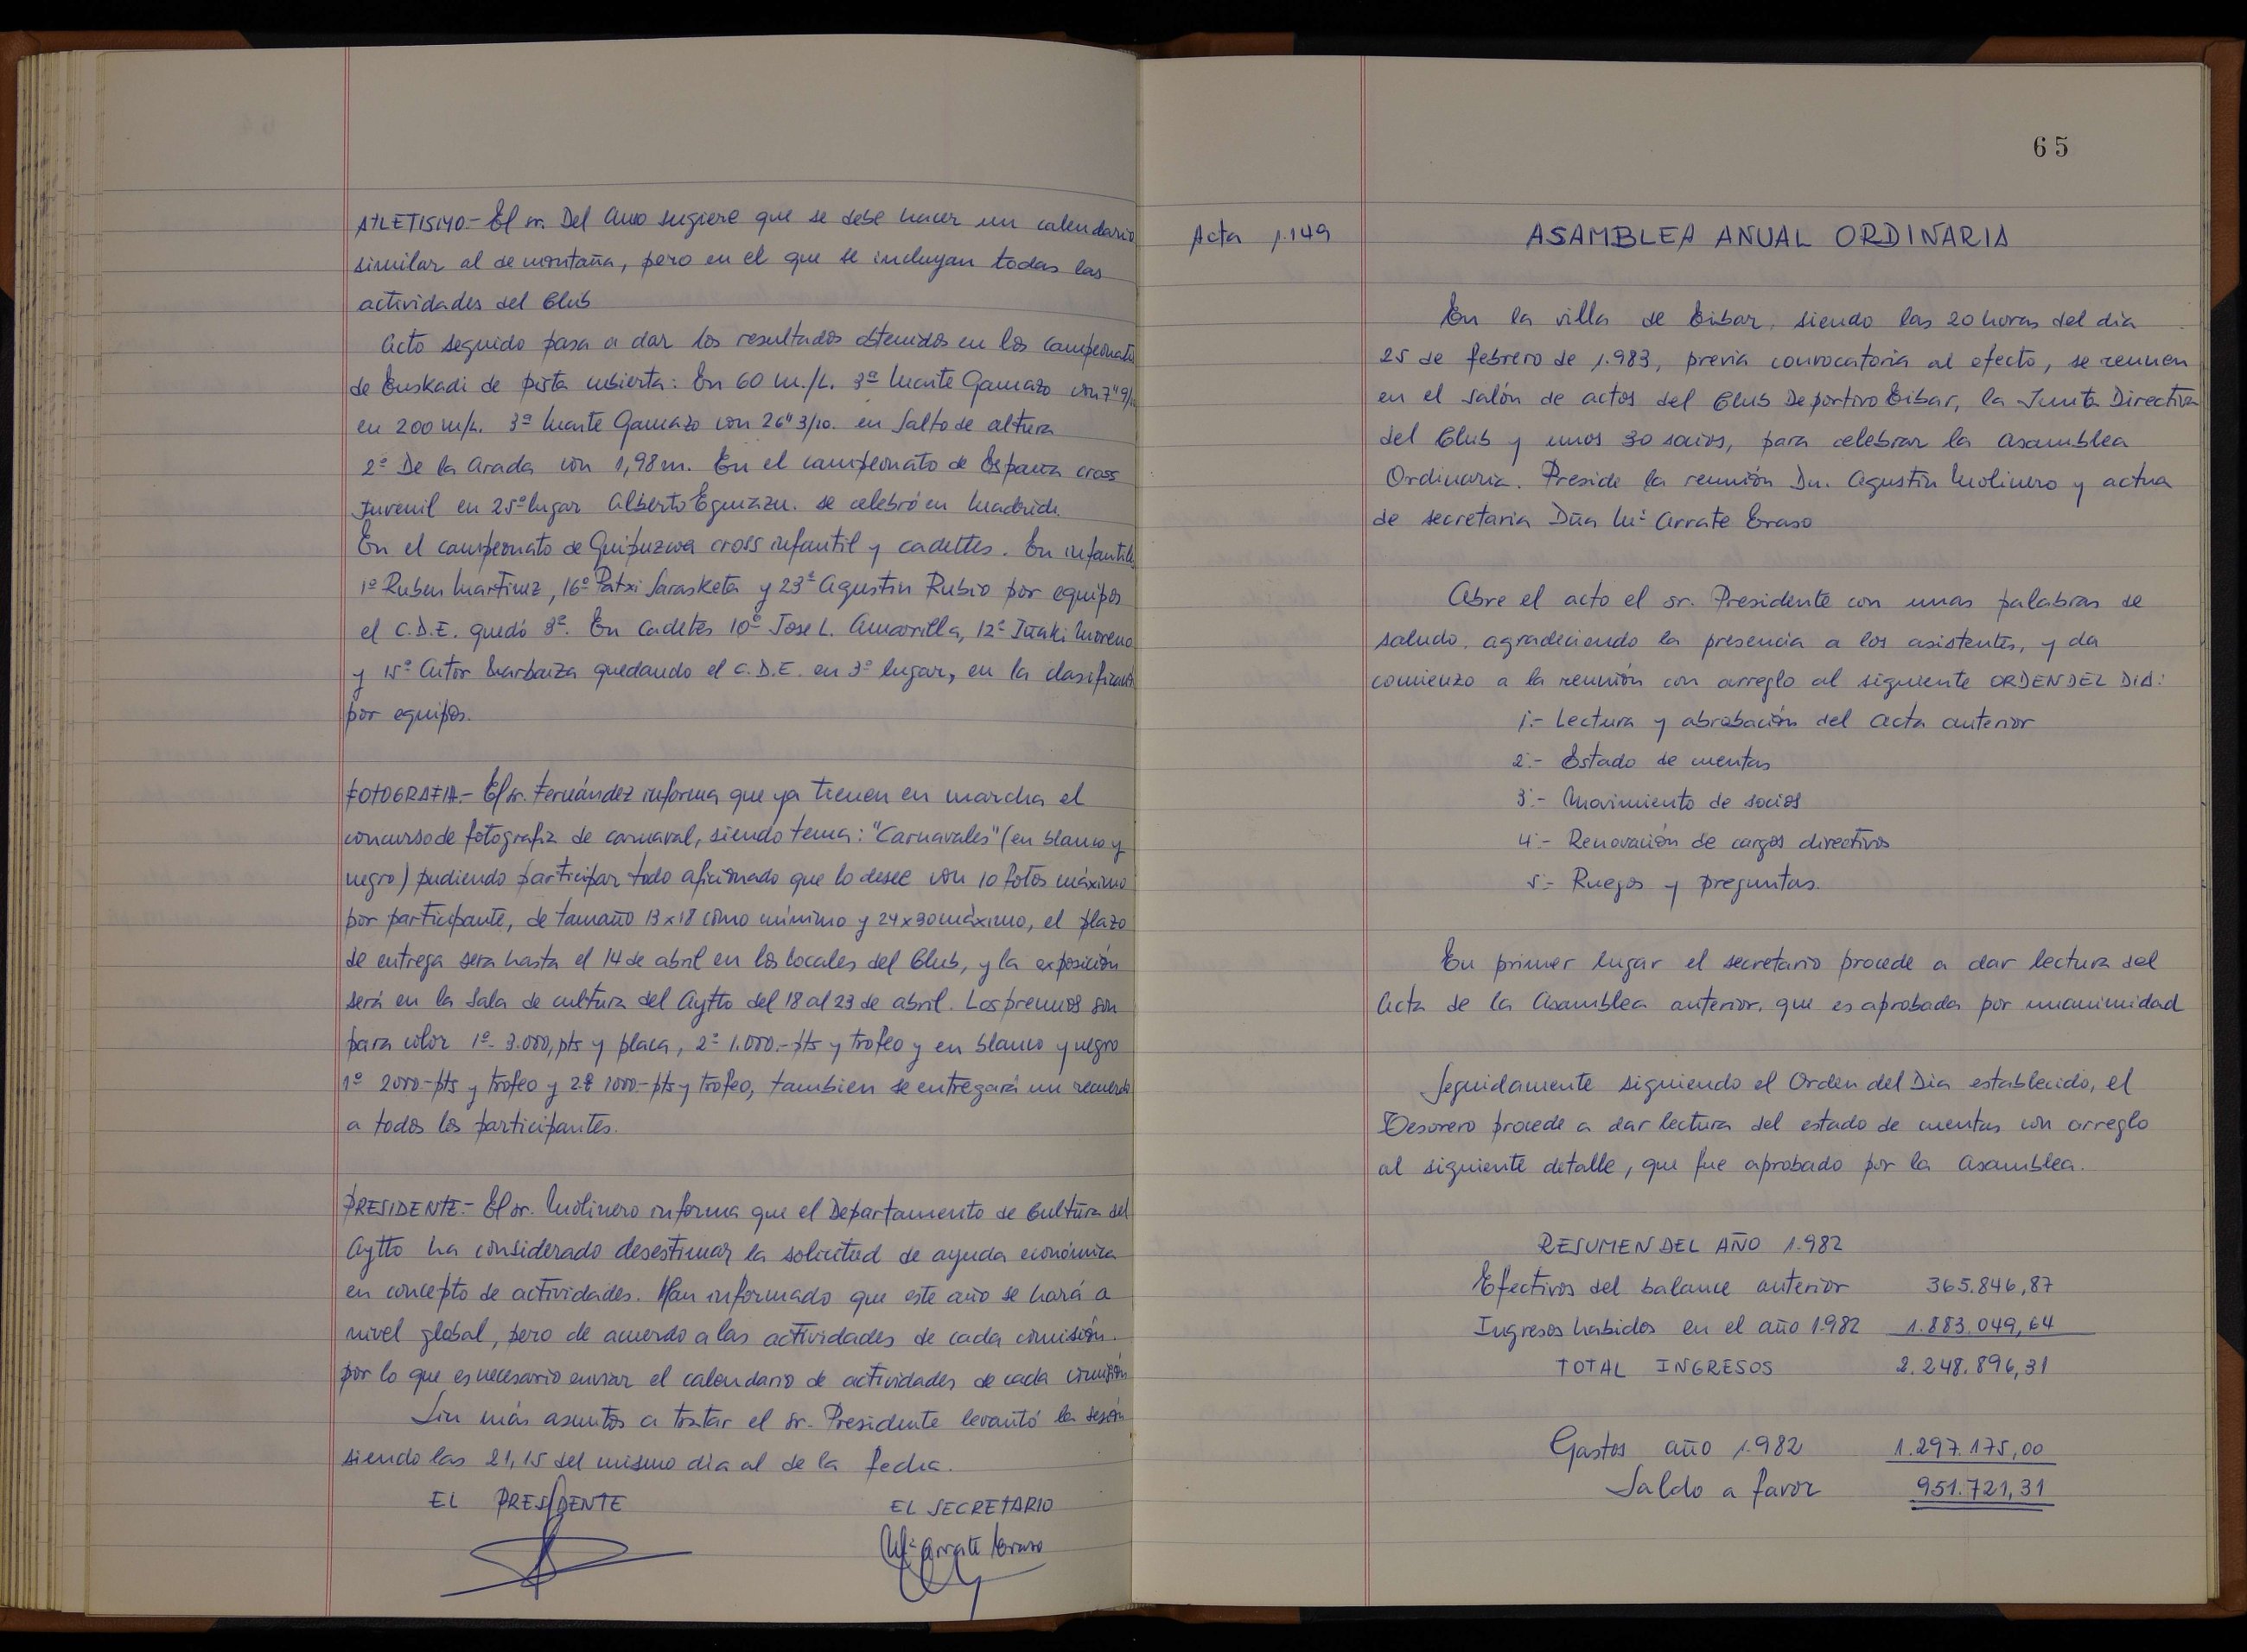 ATLETISMO.- El sr. Del Amo sugiere que se debe hacer un calendario
similar al de montaña, pero en el que se incluyan todas las
actividades del Club
Acto seguido pasa a dar los resultados obtenidos en los campeonatos
de Euskadi de pista cubierta: En 60 m./l. 3ª Maite Gamazo con 7"9/10
en 200 m/l. 3ª Maite Gamazo con 26"3/10. en Salto de altura
2º De la Arada con 1,98 m. En el campeonato de España cross
Juvenil en 25º lugar Alberto Eguiazu. se celebró en Madrid.
En el campeonato de Guipuzcoa cross infantil y cadettes. En infantiles
1º Ruben Martinez, 16º Patxi Sarasketa y 23º Agustin Rubio por equipos
el C.D.E. quedó 3º. En Cadetes 10º Jose L. Amorrilla, 12º Iñaki Moreno
y 15º Aitor Narbaiza quedando el C.D.E. en 3º lugar, en la clasificación
por equipos.
FOTOGRAFIA.- El sr. Fernández informa que ya tienen en marcha el
concurso de fotografia de carnaval, siendo tema: "Carnavales" (en blanco y
negro) pudiendo participar todo aficionado que lo desee con 10 fotos máximo
por participante, de tamaño 13 x 18 como mínimo y 24 x 30 máximo, el plazo
de entrega sera hasta el 14 de abril en los locales del Club, y la exposición
será en la Sala de cultura del Aytto del 18 al 23 de abril. Los premios son
para color 1º- 3.000,pts y placa, 2º 1.000.-pts y trofeo y en blanco y negro
1º 2000-pts y trofeo y 2º 1000-pts y trofeo, tambien se entregará un recuerdo
a todos los participantes.
PRESIDENTE.- El sr. Molinero informa que el Departamento de Cultura del
Aytto ha considerado desestimar la solicitud de ayuda económica
en concepto de actividades. Han informado que este año se hará a
nivel global, pero de acuerdo a las actividades de cada comisión.
por lo que es necesario enviar el calendario de actividades de cada comisión
Sin más asuntos a tratar el sr. Presidente levantó la sesión
siendo las 21,15 del mismo dia al de la fecha.
EL PRESIDENTE EL SECRETARIO
Mª Arrate Eraso
65
Acta 1.149 ASAMBLEA ANUAL ORDINARIA
En la villa de Eibar, siendo las 20 horas del dia
25 de febrero de 1.983, previa convocatoria al efecto, se reunen
en el salón de actos del Club Deportivo Eibar, la Junta Directiva
del Club y unos 30 socios, para celebrar la Asamblea
Ordinaria. Preside la reunión Dn. Agustin Molinero y actua
de secretaria Dña Mª Arrate Eraso
Abre el acto el sr. Presidente con unas palabras de
saludo, agradeciendo la presencia a los asistentes, y da
comienzo a la reunión con arreglo al siguiente ORDEN DEL DIA:
1.- Lectura y abrobación del Acta anterior
2.- Estado de cuentas
3.- Movimiento de socios
4.- Renovación de cargos directivos
5.- Ruegos y preguntas.
En primer lugar el secretario procede a dar lectura del
Acta de la Asamblea anterior, que es aprobada por unanimidad
Seguidamente siguiendo el Orden del Dia establecido, el
Tesorero procede a dar lectura del estado de cuentas con arreglo
al siguiente detalle, que fue aprobado por la Asamblea.
RESUMEN DEL AÑO 1.982
Efectivos del balance anterior 365.846,87
Ingresos habidos en el año 1.982 1.883.049,64
TOTAL INGRESOS 2.248.896,31
Gastos año 1.982 1.297.175,00
Saldo a favor 951.721,31